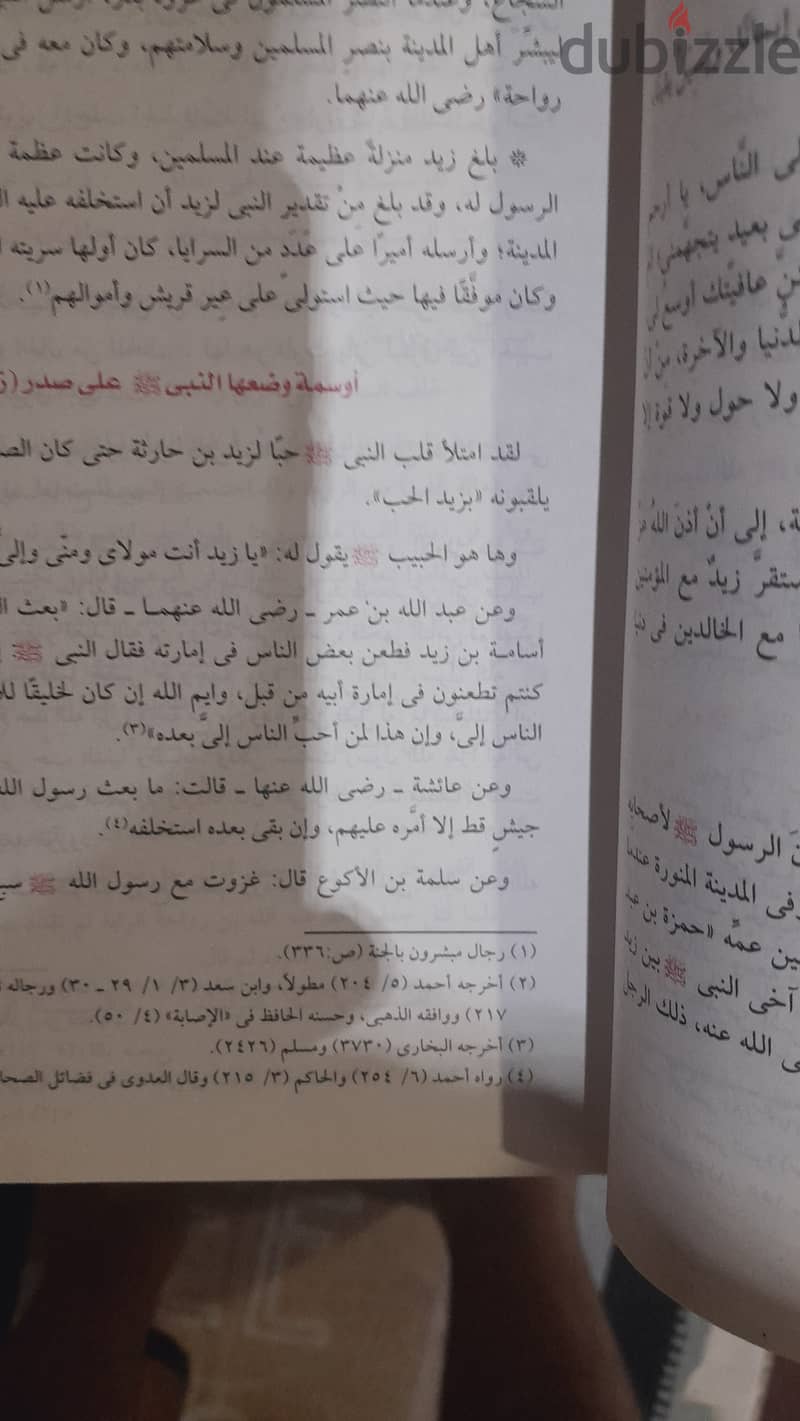 dubizzle
ليبشّر أهل المدينة بنصر المسلمين وسلامتهم، وكان معه فى
رواحة» رضى الله عنهما.
* بلغ زيد منزلةً عظيمة عند المسلمين، وكانت عظمة
الرسول له، وقد بلغ مِنْ تقدير النبى لزيد أن استخلفه عليه
المدينة؛ وأرسله أميرًا على عَدَدٍ من السرايا، كان أولها سريته
وكان موفَّقًا فيها حيث استولى على عِير قريش وأموالهم(١).
أوسمة وضعها النبى ﷺ على صدر
لقد امتلأ قلب النبى ﷺ حبًا لزيد بن حارثة حتى كان
يلقبونه «بزيد الحب».
وها هو الحبيب ﷺ يقول له: «يا زيد أنت مولاى ومنّى وإلىَّ
وعن عبد الله بن عمر ـ رضى الله عنهما ـ قال: «بعث
أسامة بن زيد فطعن بعض الناس فى إمارته فقال النبى ﷺ
كنتم تطعنون فى إمارة أبيه من قبل، وايم الله إن كان لخليقًا
الناس إلىَّ، وإن هذا لمن أحبِّ الناس إلىَّ بعده»(٣).
وعن عائشة ـ رضى الله عنها ـ قالت: ما بعث رسول
جيشٍ قط إلا أمَّره عليهم، وإن بقى بعده استخلفه(٤).
وعن سلمة بن الأكوع قال: غزوت مع رسول الله ﷺ
(١) رجال مبشرون بالجنة (ص:٣٣٦).
(٢) أخرجه أحمد (٥/ ٢٠٤) مطولاً، وابن سعد (٣/ ١/ ٢٩ ـ ٣٠) ورجاله
٢١٧) ووافقه الذهبى، وحسنه الحافظ فى «الإصابة» (٤/ ٥٠).
(٣) أخرجه البخارى (٣٧٣٠) ومسلم (٢٤٢٦).
(٤) رواه أحمد (٦/ ٢٥٤) والحاكم (٣/ ٢١٥) وقال العدوى فى فضائل
الناس، يا أرحم
بعيد يتجهمنى
عافيتك أوسع لى
والآخرة، من أن
ولا حول ولا قوة إلا
إلى أنْ أذنَ اللهُ
زيدٌ مع المؤمنين
مع الخالدين فى
الرسول ﷺ لأصحابه
المدينة المنورة عندما
عمِّه «حمزة بن عبد
آخى النبى ﷺ بين زيد
الله عنه، ذلك الرجل